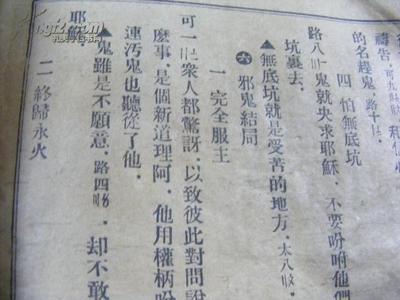 禱告.可九
的名趕鬼.路十
四 怕無底坑
路八 鬼就央求耶穌.不要吩咐他們
坑裏去.
▲無底坑就是受苦的地方.太八
㊅ 邪鬼結局
一 完全服主
可一 衆人都驚訝.以致彼此對問說
麽事.是個新道理阿.他用權柄吩
連污鬼也聽從了他.
▲鬼雖是不願意.路四 .却不敢
耶穌.
二 終歸永火